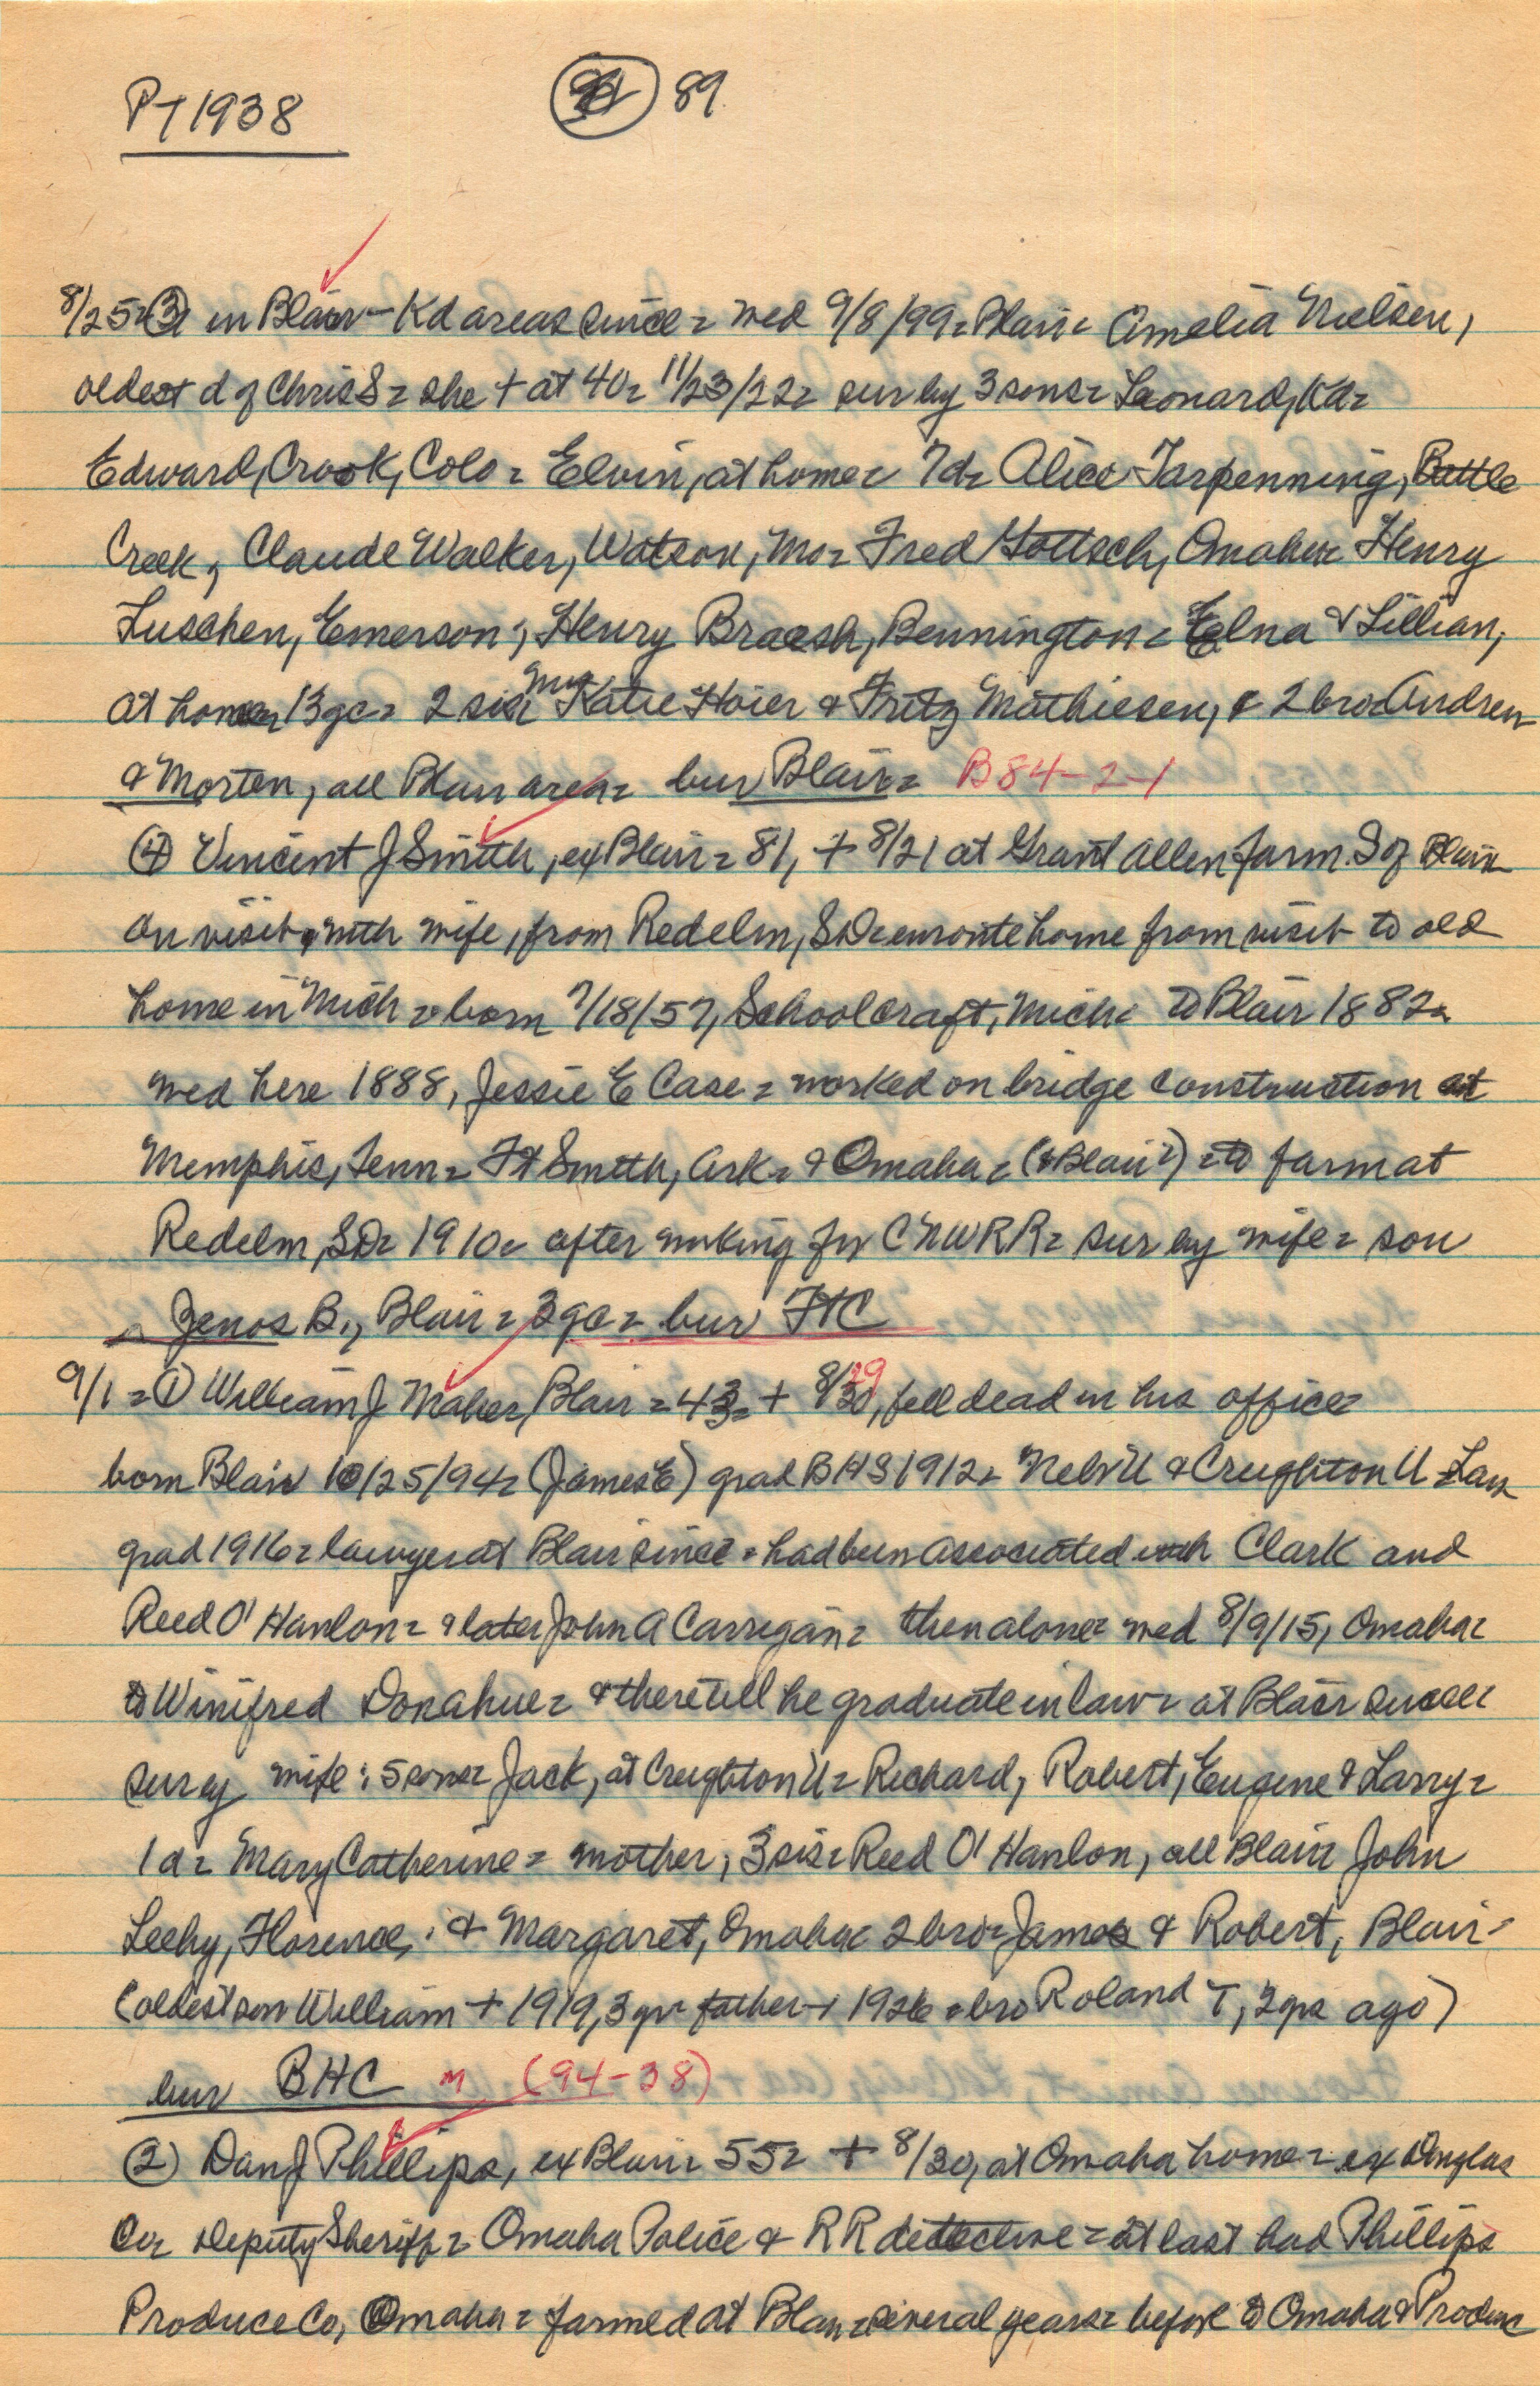 PT 1938 89
8/25 = (3) in Blair - Kd areas since = wed 9/8/99 = Blair = Amelia Nielsen,
oldest d of Chris S = she + at 40 = 11/23/22 = sur by 3 sons = Leonard, Kd =
Edward, Crook, Colo = Elvin, at home = 7d = Alice Tarpenning, Battle
Creek, Claude Walker, Watson, Mo = Fred Gottsch, Omaha = Henry
Luschen, Emerson; Henry Braesh, Bennington = Elna & Lillian,
at home = 13 gc = 2 sis = Mrs Katie Hoier & Fritz Mathiesen, & 2 bro = Andrew
& Morten, all Blair area = bur Blair = B84-2-1
(4) Vincent J Smith, ex Blair = 81, + 8/21 at Grant Allen farm S of Blair
on visit, with wife, from Redelm, SD = enroute home from visit to old
home in Mich = born 7/18/57, Schoolcraft, Mich = to Blair 1882 =
wed here 1888, Jessie E Case = worked on bridge construction at
Memphis, Tenn = Ft Smith, Ark = & Omaha = (& Blair?) = to farm at
Redelm, SD = 1910 = after working for CNWRR = sur by wife = son
Zenos B., Blair = 3 gc = bur FTC
9/1 = (1) William J Maher, Blair = 43 = + 8/29, fell dead in his office =
born Blair 10/25/94 = (James E) grad BHS 1912 = Nebr U & Creighton U = Law
grad 1916 = lawyer at Blair since = had been associated with Clark and
Reed O'Hanlon = & later John A Carrigan = then alone = wed 8/9/15, Omaha =
to Winifred Donahue = & there till he graduate in law = at Blair since =
sur by wife; 5 sons = Jack, at Creighton U = Richard, Robert, Eugene & Larry =
1 d = Mary Catherine = mother; 3 sis = Reed O'Hanlon, all Blair = John
Leehy, Florence; & Margaret, Omaha = 2 bro = James & Robert, Blair =
(oldest son William + 1919, 3 yr = father + 1926 = bro Roland T, 2 yrs ago)
bur BHC M (94-38)
(2) Dan J Phillips, ex Blair = 55 = + 8/30, at Omaha home = ex Douglas
Co = Deputy Sheriff = Omaha Police & RR detective = at last had Phillips
Produce Co, Omaha = farmed at Blair = several years = before to Omaha & Produce